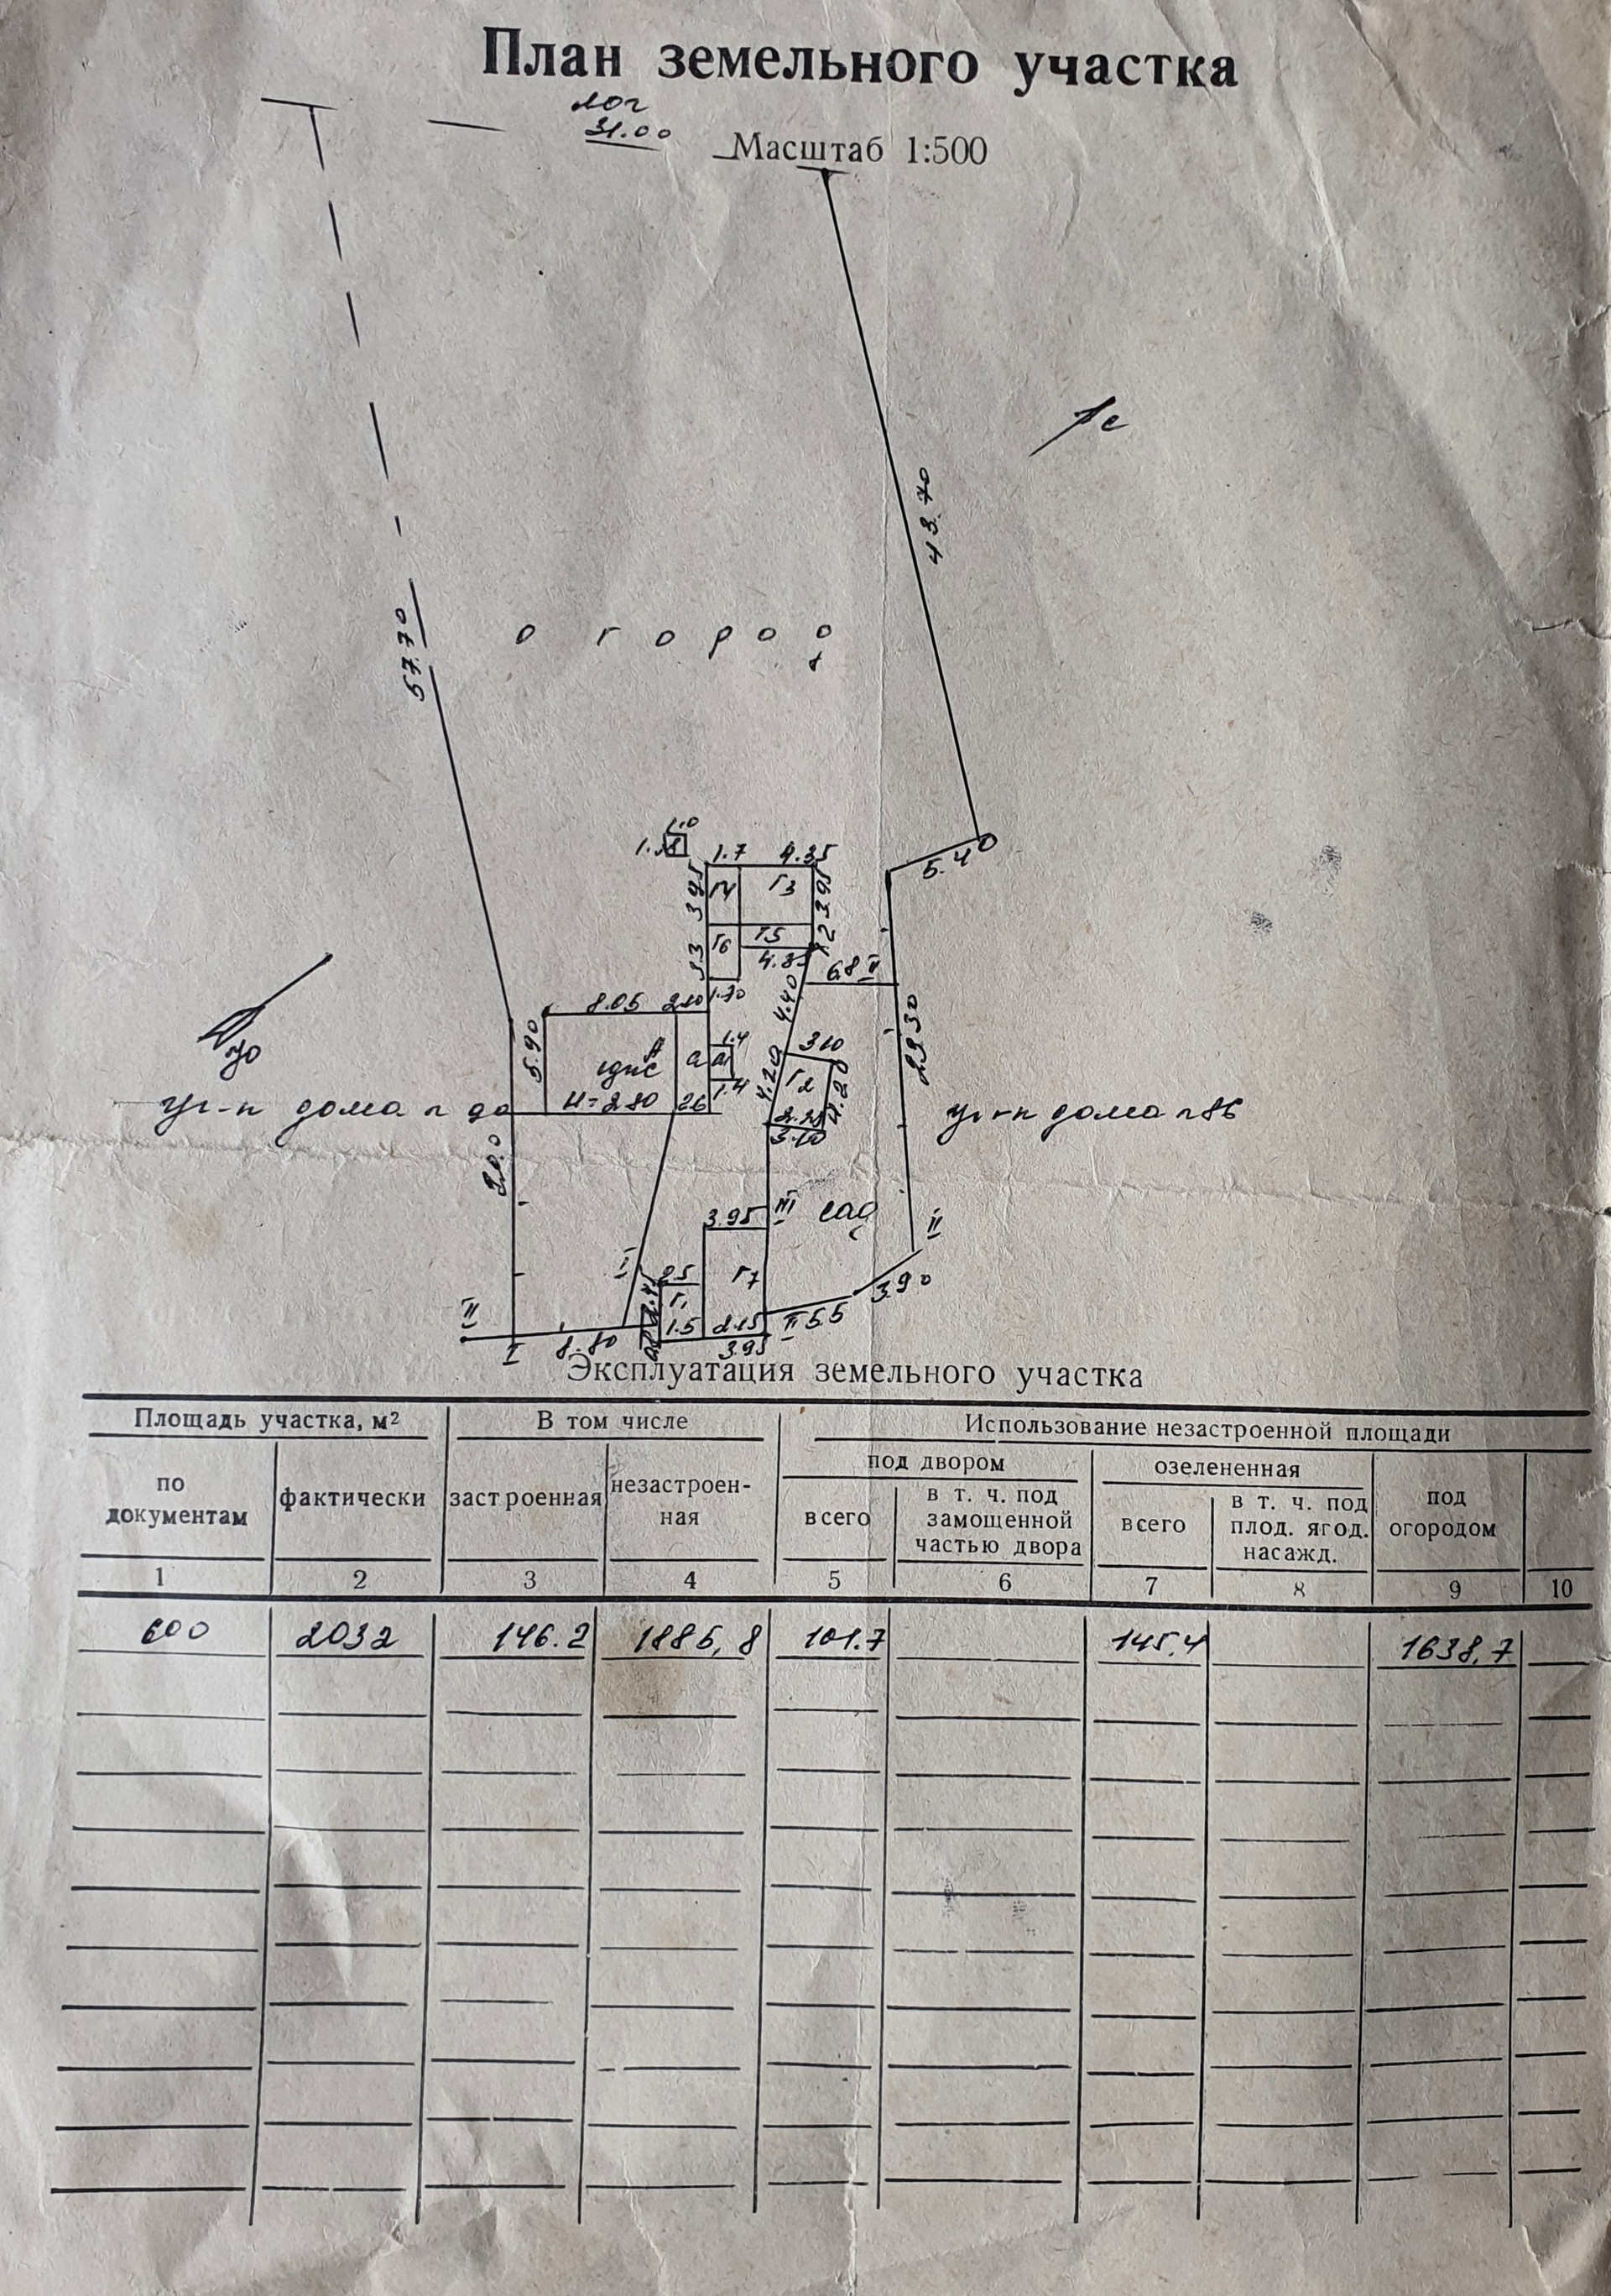 План земельного участка
лог
31.00
Масштаб 1:500
с
43.70
57.70
о г о р о д
1.0
1.7 4.35
5.40
3.95 Г4 Г3 3.95
3.3 Г6 Г5 2
4.35
6.8 II
8.05 2.10 1.70
4.40
23.30
5.90
А а а1 1.4
3.10
ю
Г2
4.20 4.20
H=2.80 2.6 1.4
дома n
дома n 86
3.10
20.0
3.95 III сад
II
I
Г7
Г1
3.90
II
1.5 2.15 II 5.5
I 8.80 3.95
Эксплуатация земельного участка
Площадь участка, м2 В том числе Использование незастроенной площади
под двором озелененная
по документам фактически застроенная незастроен-ная всего в т. ч. под замощенной частью двора всего в т. ч. под плод. ягод. насажд. под огородом
1 2 3 4 5 6 7 8 9 10
600 2032 146.2 1885,8 101.7 145,4 1638,7